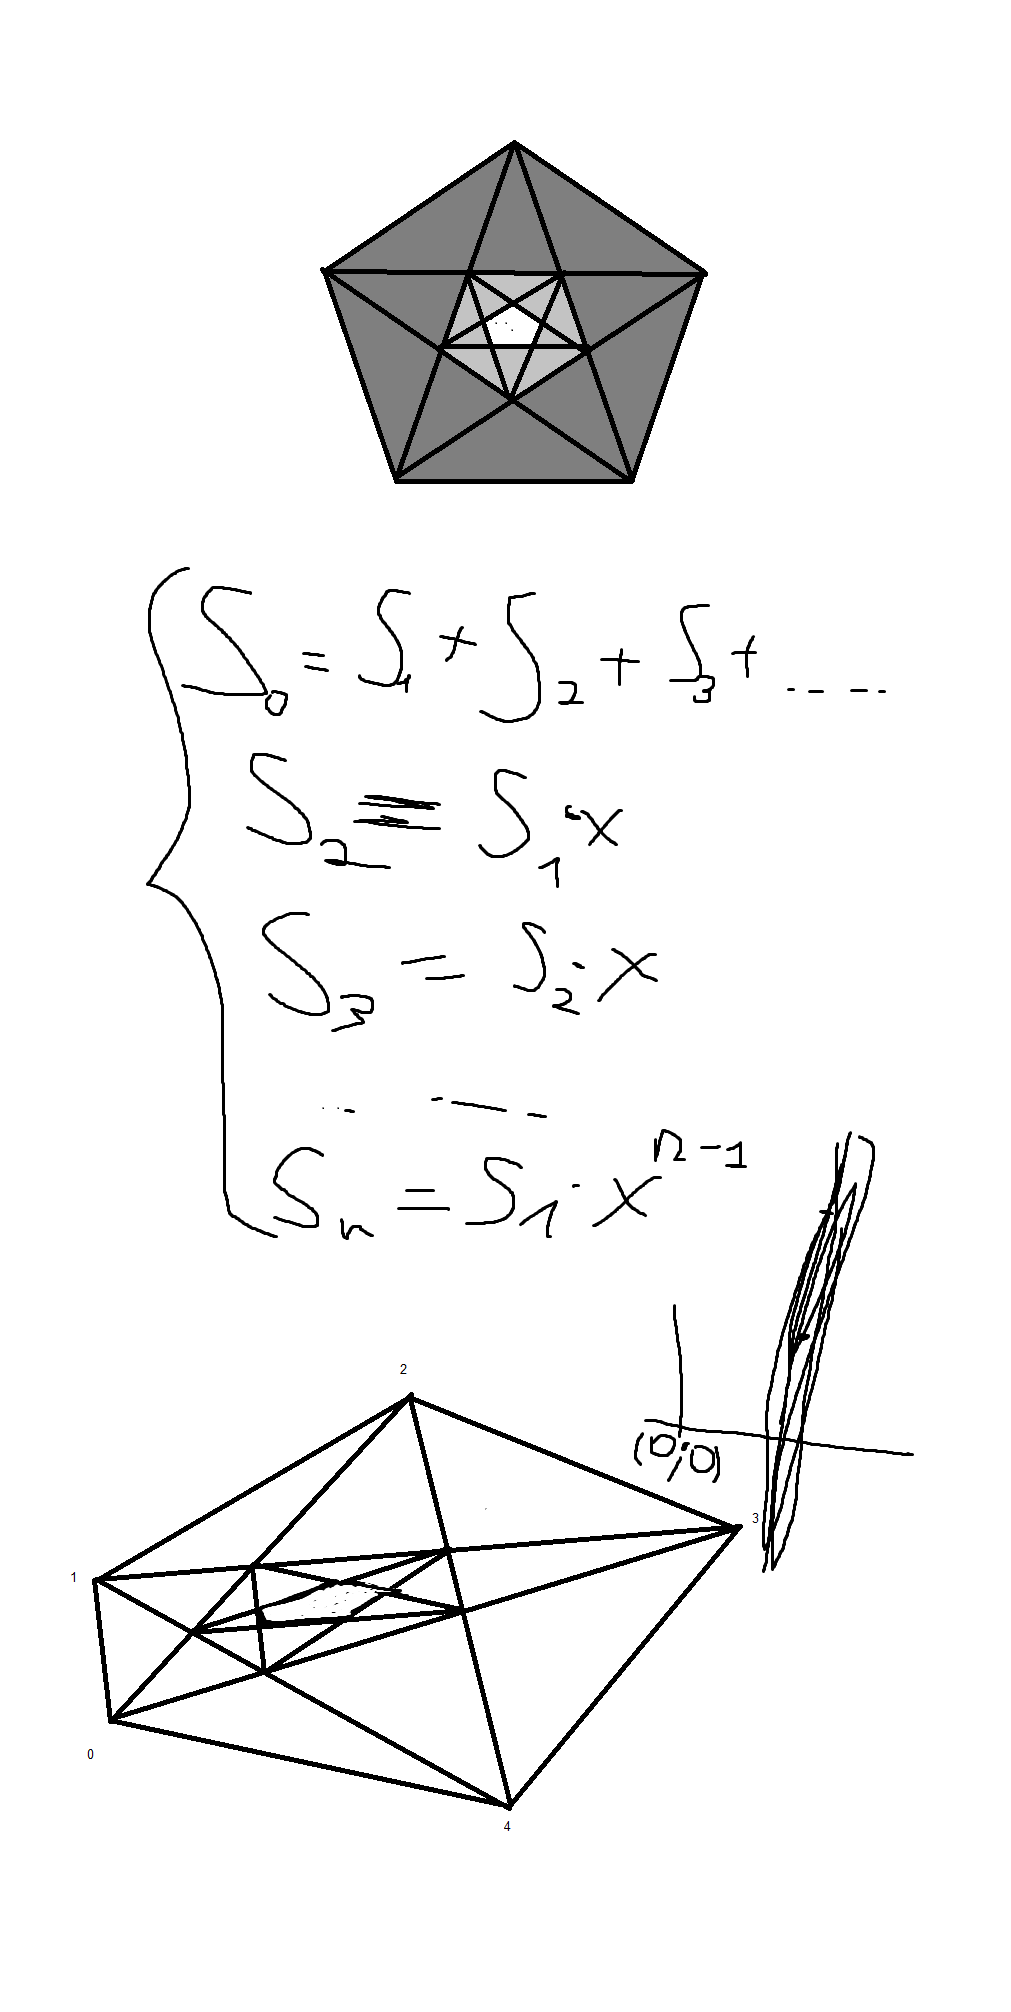 S₀ = S₁ + S₂ + S₃ + .....
S₂ = S₁ · x
S₃ = S₂ · x
... ----
Sₙ = S₁ · xⁿ⁻¹
(0;0)
2
3
1
0
4